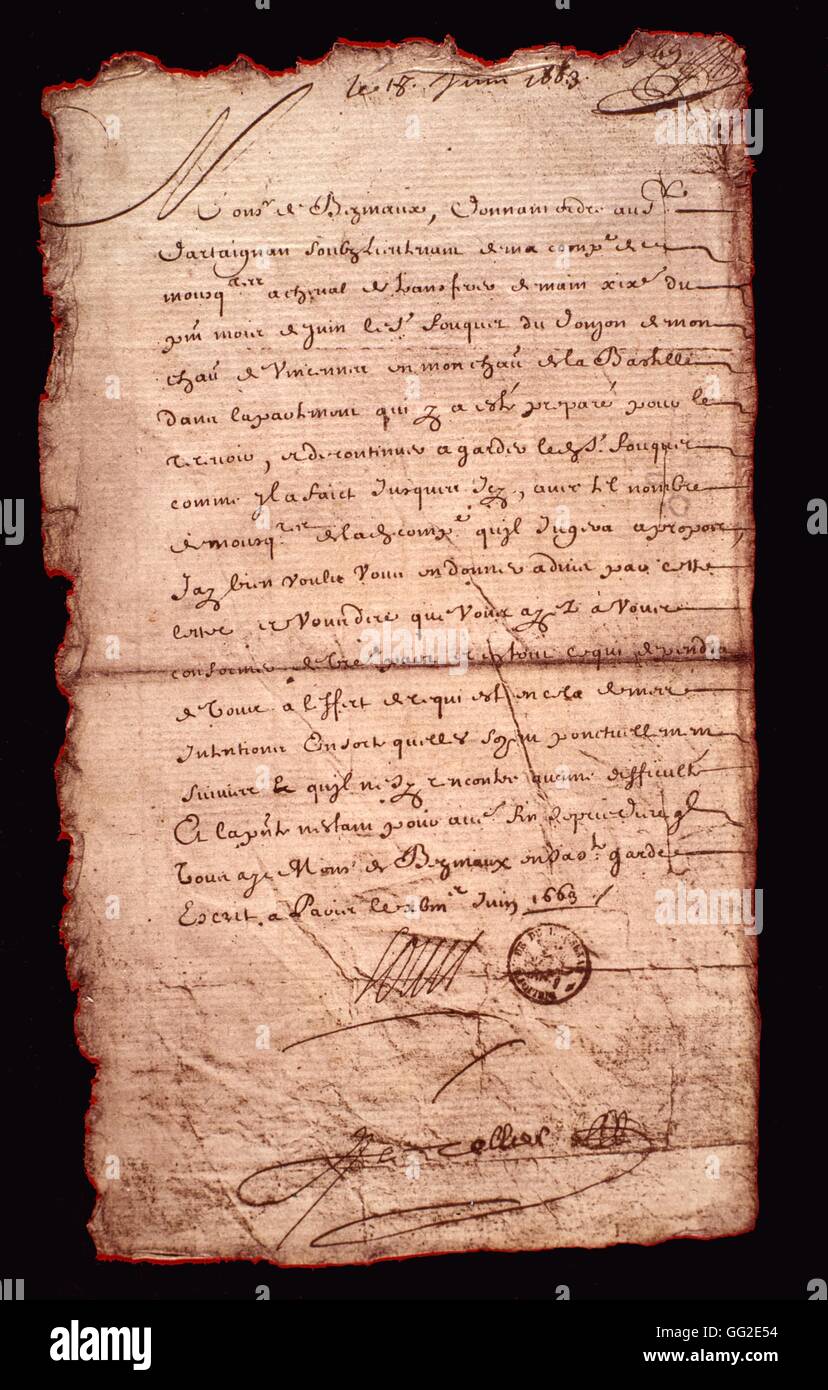 le 18. Juin 1663.
Mons.r de Bezmaux, Donnant ordre au S.r
Dartaignan soubz Lieutenant de ma comp.e de
mousq.rs a cheval de transferer demain xix.e du
pnt mois de juin le S.r fouquet du Donjon de mon
chau de Vincennes en mon chau de la Bastille
dans lapartement qui y a esté preparé pour le
recevoir, et de continuer a garder led. S.r fouquet
comme Il a faict Jusques Icy, avec tel nombre
de mousq.res de lad. comp.e quil Jugera a propos,
Jay bien voulu vous en donner advis par cette
lettre et vous dire que vous ayez à vous
conformer et tout ce qui dependra
de vous à leffect de ce qui est en cela de mes
Intentions En sorte quelles soyent ponctuellement
suivies & quil ne sy rencontre aucune difficulté
Et la pnte nestant pour autre fin Je prie Dieu ql
vous ayt Mons.r de Bezmaux en sa s.te garde
Escrit a Paris le xviii.e Juin 1663
Louis
Le Tellier
alamy
a
Image ID: GG2E54
www.alamy.com